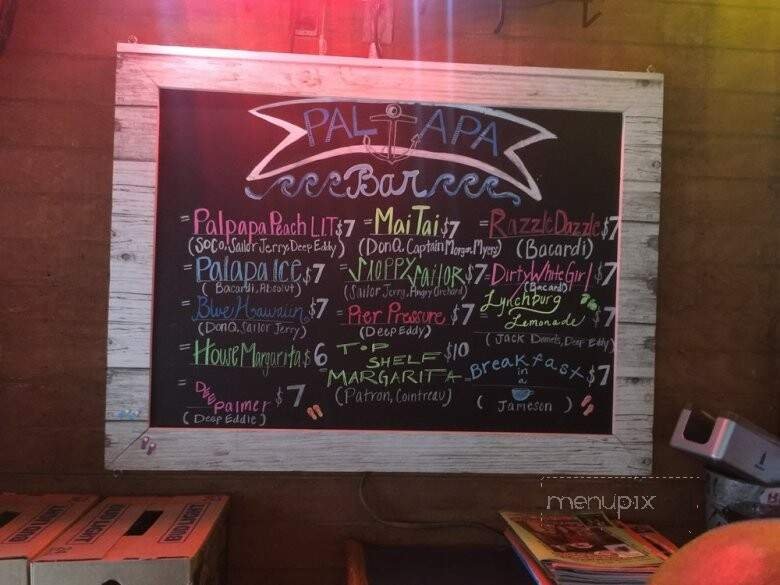 PALAPA
Bar
= Palpapa Peach L.I.T $7
(SoCo, Sailor Jerry, Deep Eddy)
= Palapa Ice $7
(Bacardi, Absolut)
= Blue Hawaiin $7
(DonQ, Sailor Jerry)
= House Margarita $6
= Palmer $7
(Deep Eddie)
= Mai Tai $7
(DonQ, Captain Morgan, Myers)
= Sloppy Sailor $7
(Sailor Jerry, Angry Orchard)
= Pier Pressure $7
(Deep Eddy)
= TOP $10
SHELF
MARGARITA
(Patron, Cointreau)
= Razzle Dazzle $7
(Bacardi)
= Dirty White Girl $7
(Bacardi)
Lynchburg
Lemonade $7
(Jack Daniels, Deep Eddy)
= Breakfast $7
in a
(Jameson)
menupix